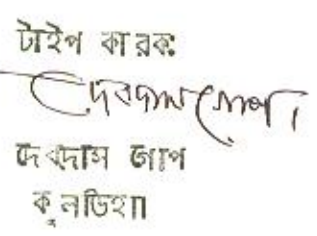 টাইপ কারকঃ
দেবদাস গোপ।
দেবদাস গোপ
কুলডিহা